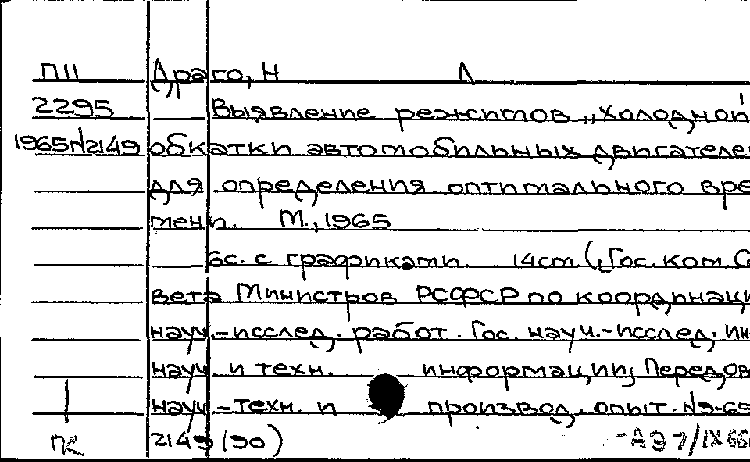 П11 Драго, Н Д
2295 Выявление режимов „Холодной
1965N2149 обкатки автомобильных двигателе
для определения оптимального вре
мени. М., 1965
6с. с графиками. 14cm (Гос. ком. С
вета Министров РСФСР по координац
науч.-исслед. работ. Гос. науч.-исслед. ин
науч. и техн. информации, Передов
науч.-техн. и производ. опыт. №9-65
ПК 2149 (90) -АЭ7/IX 66